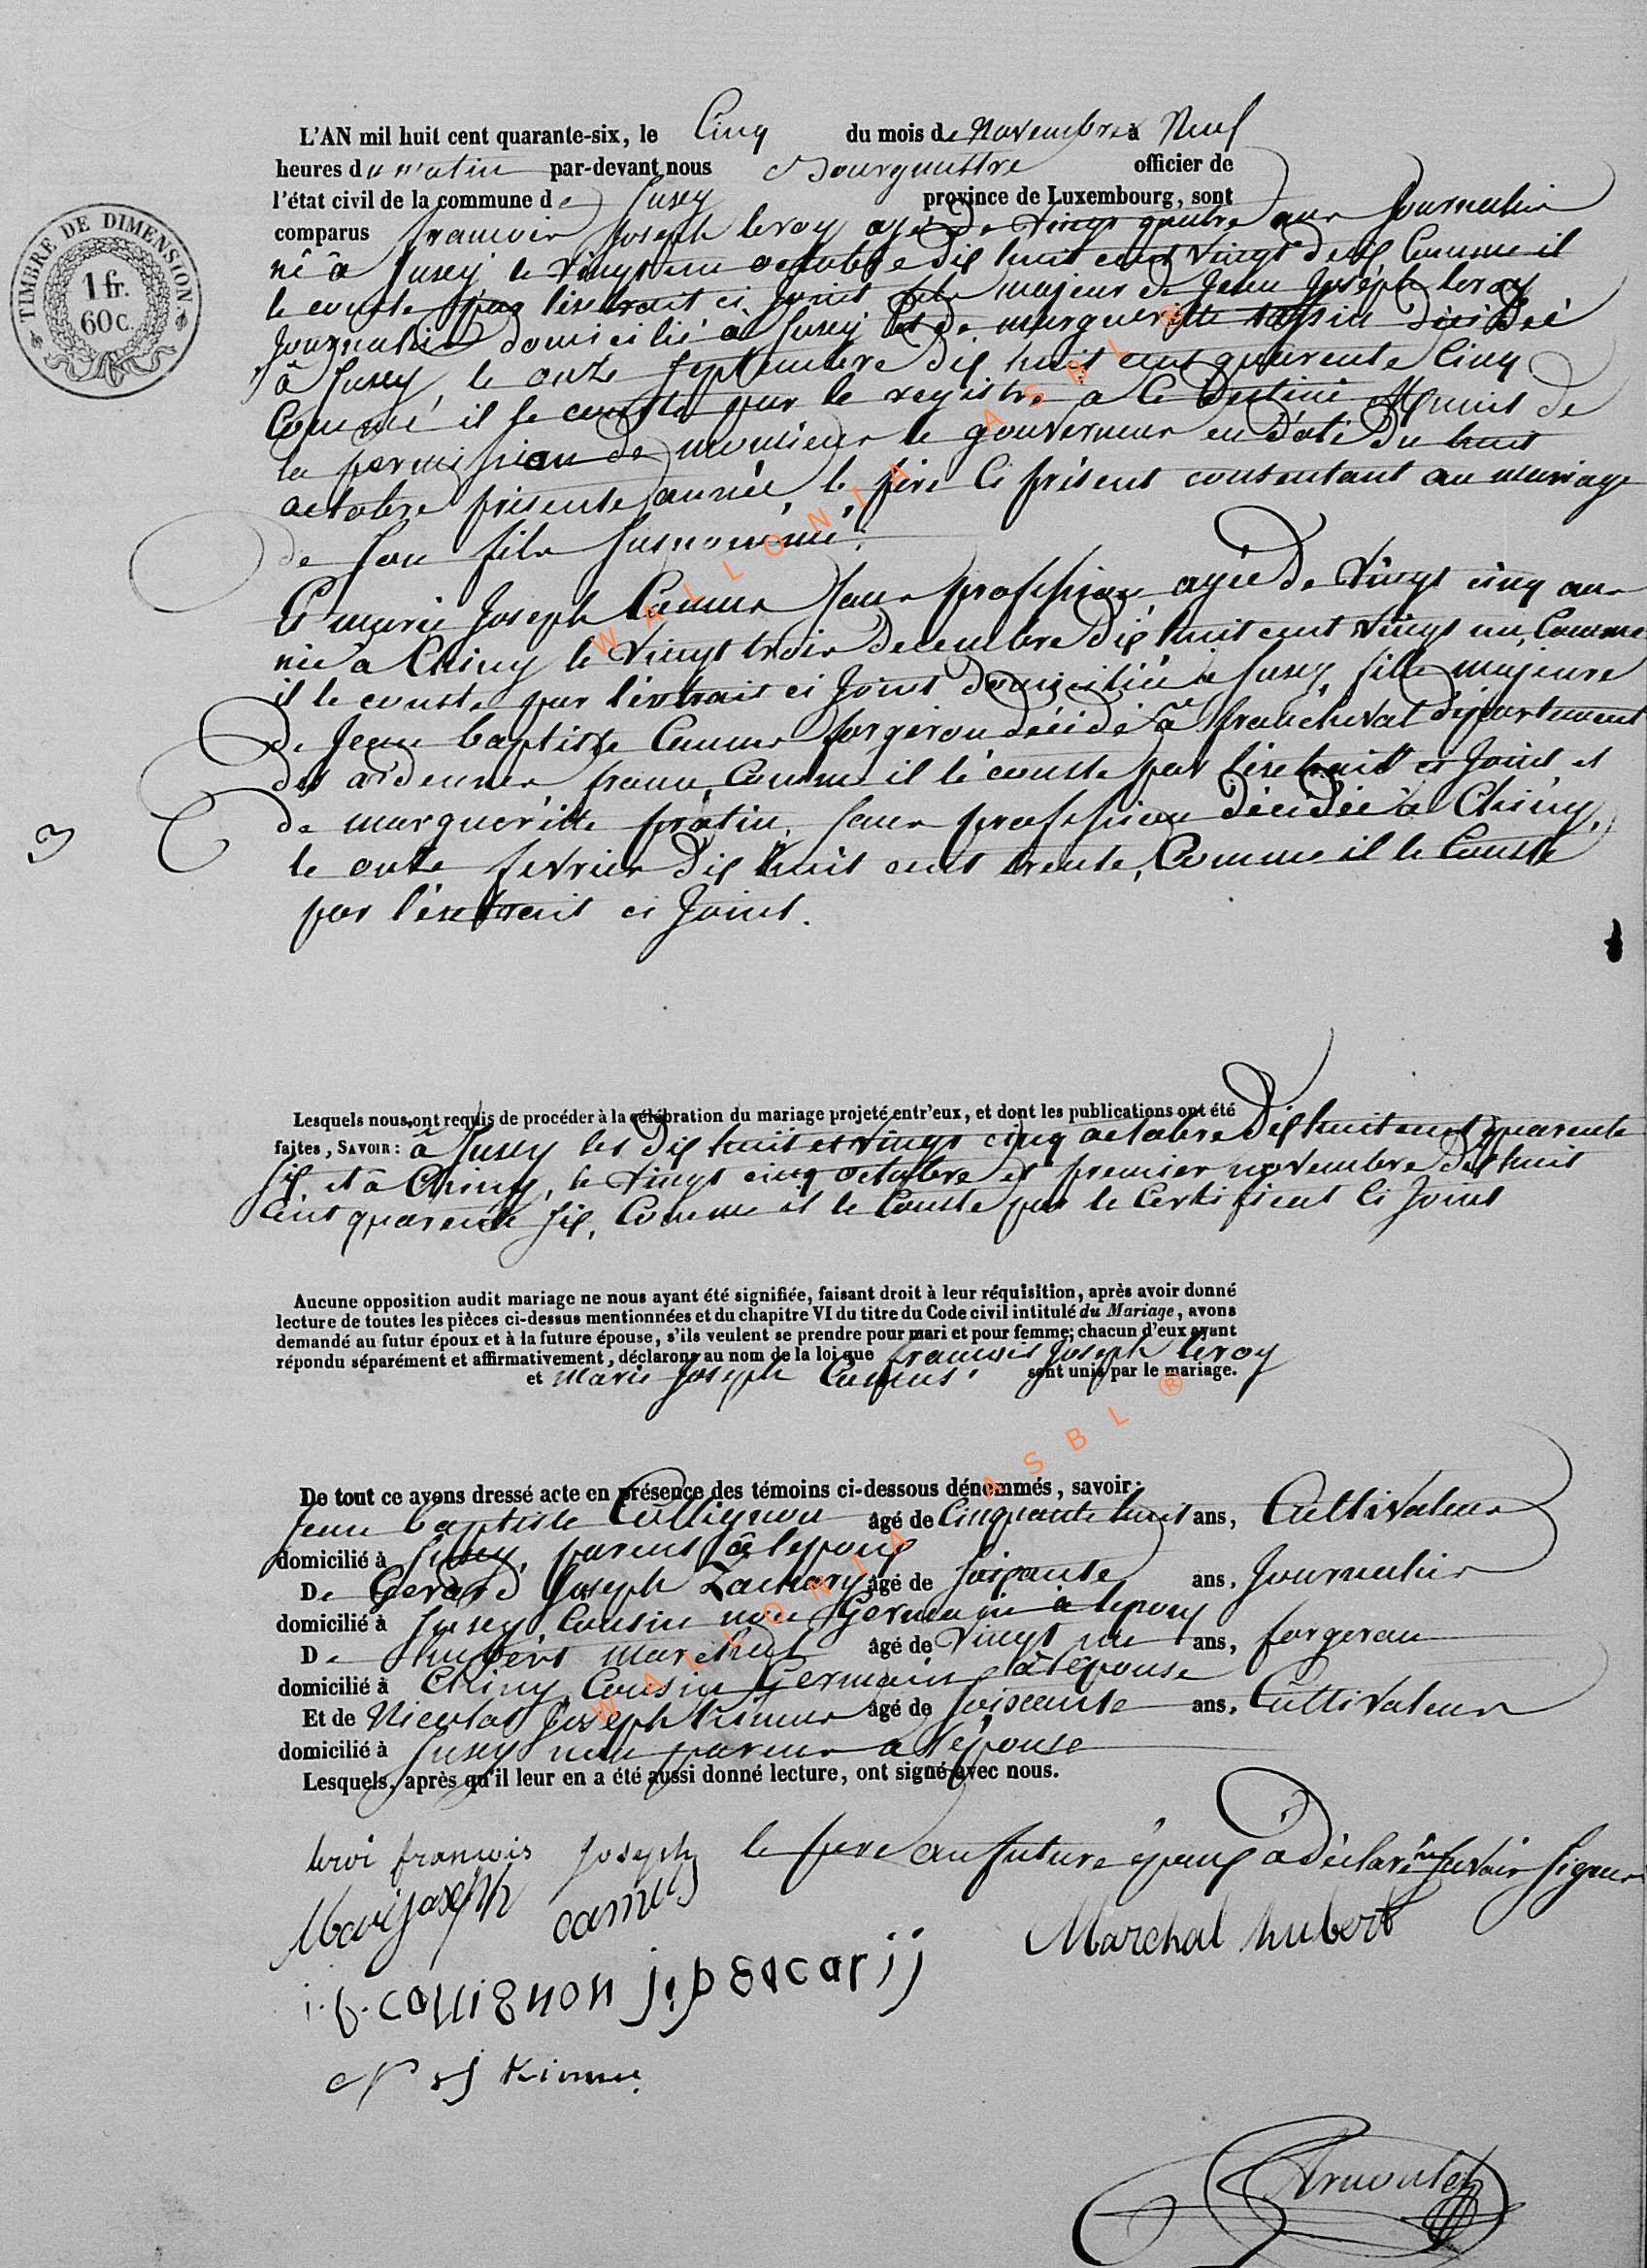 TIMBRE DE DIMENSION.
1 fr.
60 c.
L'AN mil huit cent quarante-six, le Cinq du mois de Novembre à Neuf
heures du matin par-devant nous Bourguemttre officier de
l'état civil de la commune de Jusey province de Luxembourg, sont
comparus francois Joseph leroy agé de vingt quatre ans Journalier
né à Jusey le vingt un octobre dix huit cent vingt deux Comme il
le conste par l'extrait ci Joint fils majeur de Jean Joseph leroy
Journalier domicilié à Jusey et de margueritte décédée
à Jusey, le onze septembre dix huit cent quarente Cinq
Comme il le conste par le registre a ce destiné Muni de
la permission de monsieur le gouverneur en date du huit
octobre présente année, le père Ci présent consentant au mariage
de son fils susnommé.
Et marie Joseph Camus sans profession, agée de vingt cinq ans
née à Chiny le vingt trois decembre dix huit cent vingt un, Comme
il le conste par l'extrait ci Joint domiciliée à Jusey, fille majeure
de Jean baptiste Camus forgeron décédé à francheval département
des ardennes france, Comme il le conste par l'extrait ci Joint et
de marguéritte prâtin, sans profession décédée à Chiny,
le onze fevrier dix huit cent trente, Comme il le Conste
par l'extrait ci Joint.
3
Lesquels nous ont requis de procéder à la célébration du mariage projeté entr'eux, et dont les publications ont été
faites, SAVOIR: à Jusey les dix huit et vingt cinq octobre dix huit cent quarente
six et à Chiny, le vingt cinq octobre et premier novembre dix huit
cent quarente six, Comme il le Conste par le Certificat Ci Joint
Aucune opposition audit mariage ne nous ayant été signifiée, faisant droit à leur réquisition, après avoir donné
lecture de toutes les pièces ci-dessus mentionnées et du chapitre VI du titre du Code civil intitulé du Mariage, avons
demandé au futur époux et à la future épouse, s'ils veulent se prendre pour mari et pour femme; chacun d'eux ayant
répondu séparément et affirmativement, déclarons au nom de la loi que francois Joseph leroy
et Marie Joseph Camus sont unis par le mariage.
De tout ce avons dressé acte en présence des témoins ci-dessous dénommés, savoir:
Jean baptiste Collignon âgé de Cinquante huit ans, Cultivateur
domicilié à Jusey, parent à lepoux
De Gerard Joseph Zachary âgé de soixante ans, Journalier
domicilié à Jusey Cousin non Germain à lepoux
De hubert marchal âgé de Vingt un ans, forgeron
domicilié à Chiny, Cousin Germain à l'épouse
Et de Nicolas Joseph kimus âgé de soixante ans, Cultivateur
domicilié à Jusey non parent a l'épouse
Lesquels, après qu'il leur en a été aussi donné lecture, ont signé avec nous.
leroi francois Joseph le pere au future époux à déclaré ne savoir signer
Mari joseph camus
Marchal hubert
i. b. collignon j. p sacarij
N J Kimus
Arnould
WALLONIA ASBL ®
WALLONIA ASBL ®